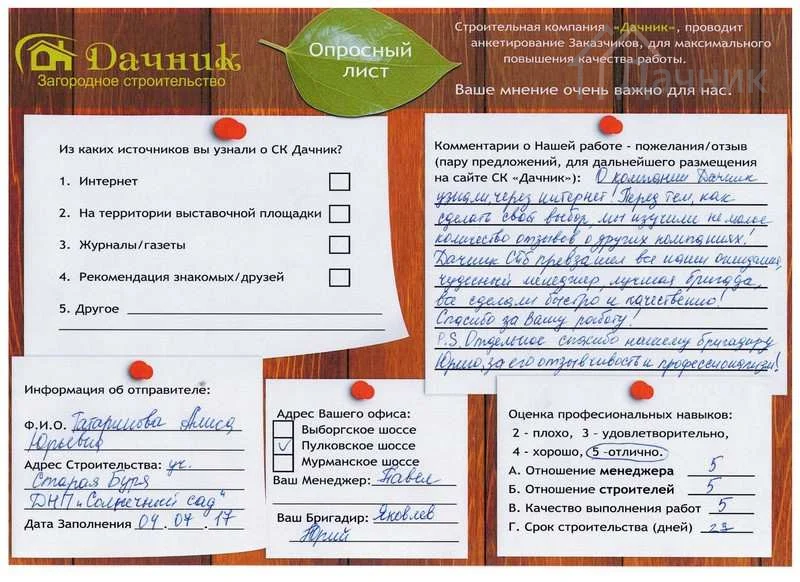 Дачник
Загородное строительство
Опросный
лист
Строительная компания «Дачник», проводит
анкетирование Заказчиков, для максимального
повышения качества работы.
Ваше мнение очень важно для нас.
Дачник
Из каких источников вы узнали о СК Дачник?
1. Интернет
2. На территории выставочной площадки
3. Журналы/газеты
4. Рекомендация знакомых/друзей
5. Другое
Комментарии о Нашей работе - пожелания/отзыв
(пару предложений, для дальнейшего размещения
на сайте СК «Дачник»): О компании Дачник
узнали через интернет! Перед тем, как
сделать свой выбор, мы изучили не малое
количество отзывов о других компаниях!
Дачник СПб превзашел все наши ожидания,
чудесный менеджер, лучшая бригада,
все сделали быстро и качественно!
Спасибо за Вашу работу!
P.S. Отдельное спасибо нашему бригадиру
Юрию, за его отзывчивость и профессионализм!
Информация об отправителе:
Ф.И.О. Татаринова Алиса
Юрьевна
Адрес Строительства: уч.
Старая Буря
ДНП "Солнечный сад"
Дата Заполнения 04.07.17
Адрес Вашего офиса:
Выборгское шоссе
Пулковское шоссе
Мурманское шоссе
Ваш Менеджер: Павел
Ваш Бригадир: Яковлев
Юрий
Оценка професиональных навыков:
2 - плохо, 3 - удовлетворительно,
4 - хорошо, 5 -отлично.
А. Отношение менеджера 5
Б. Отношение строителей 5
В. Качество выполнения работ 5
Г. Срок строительства (дней)